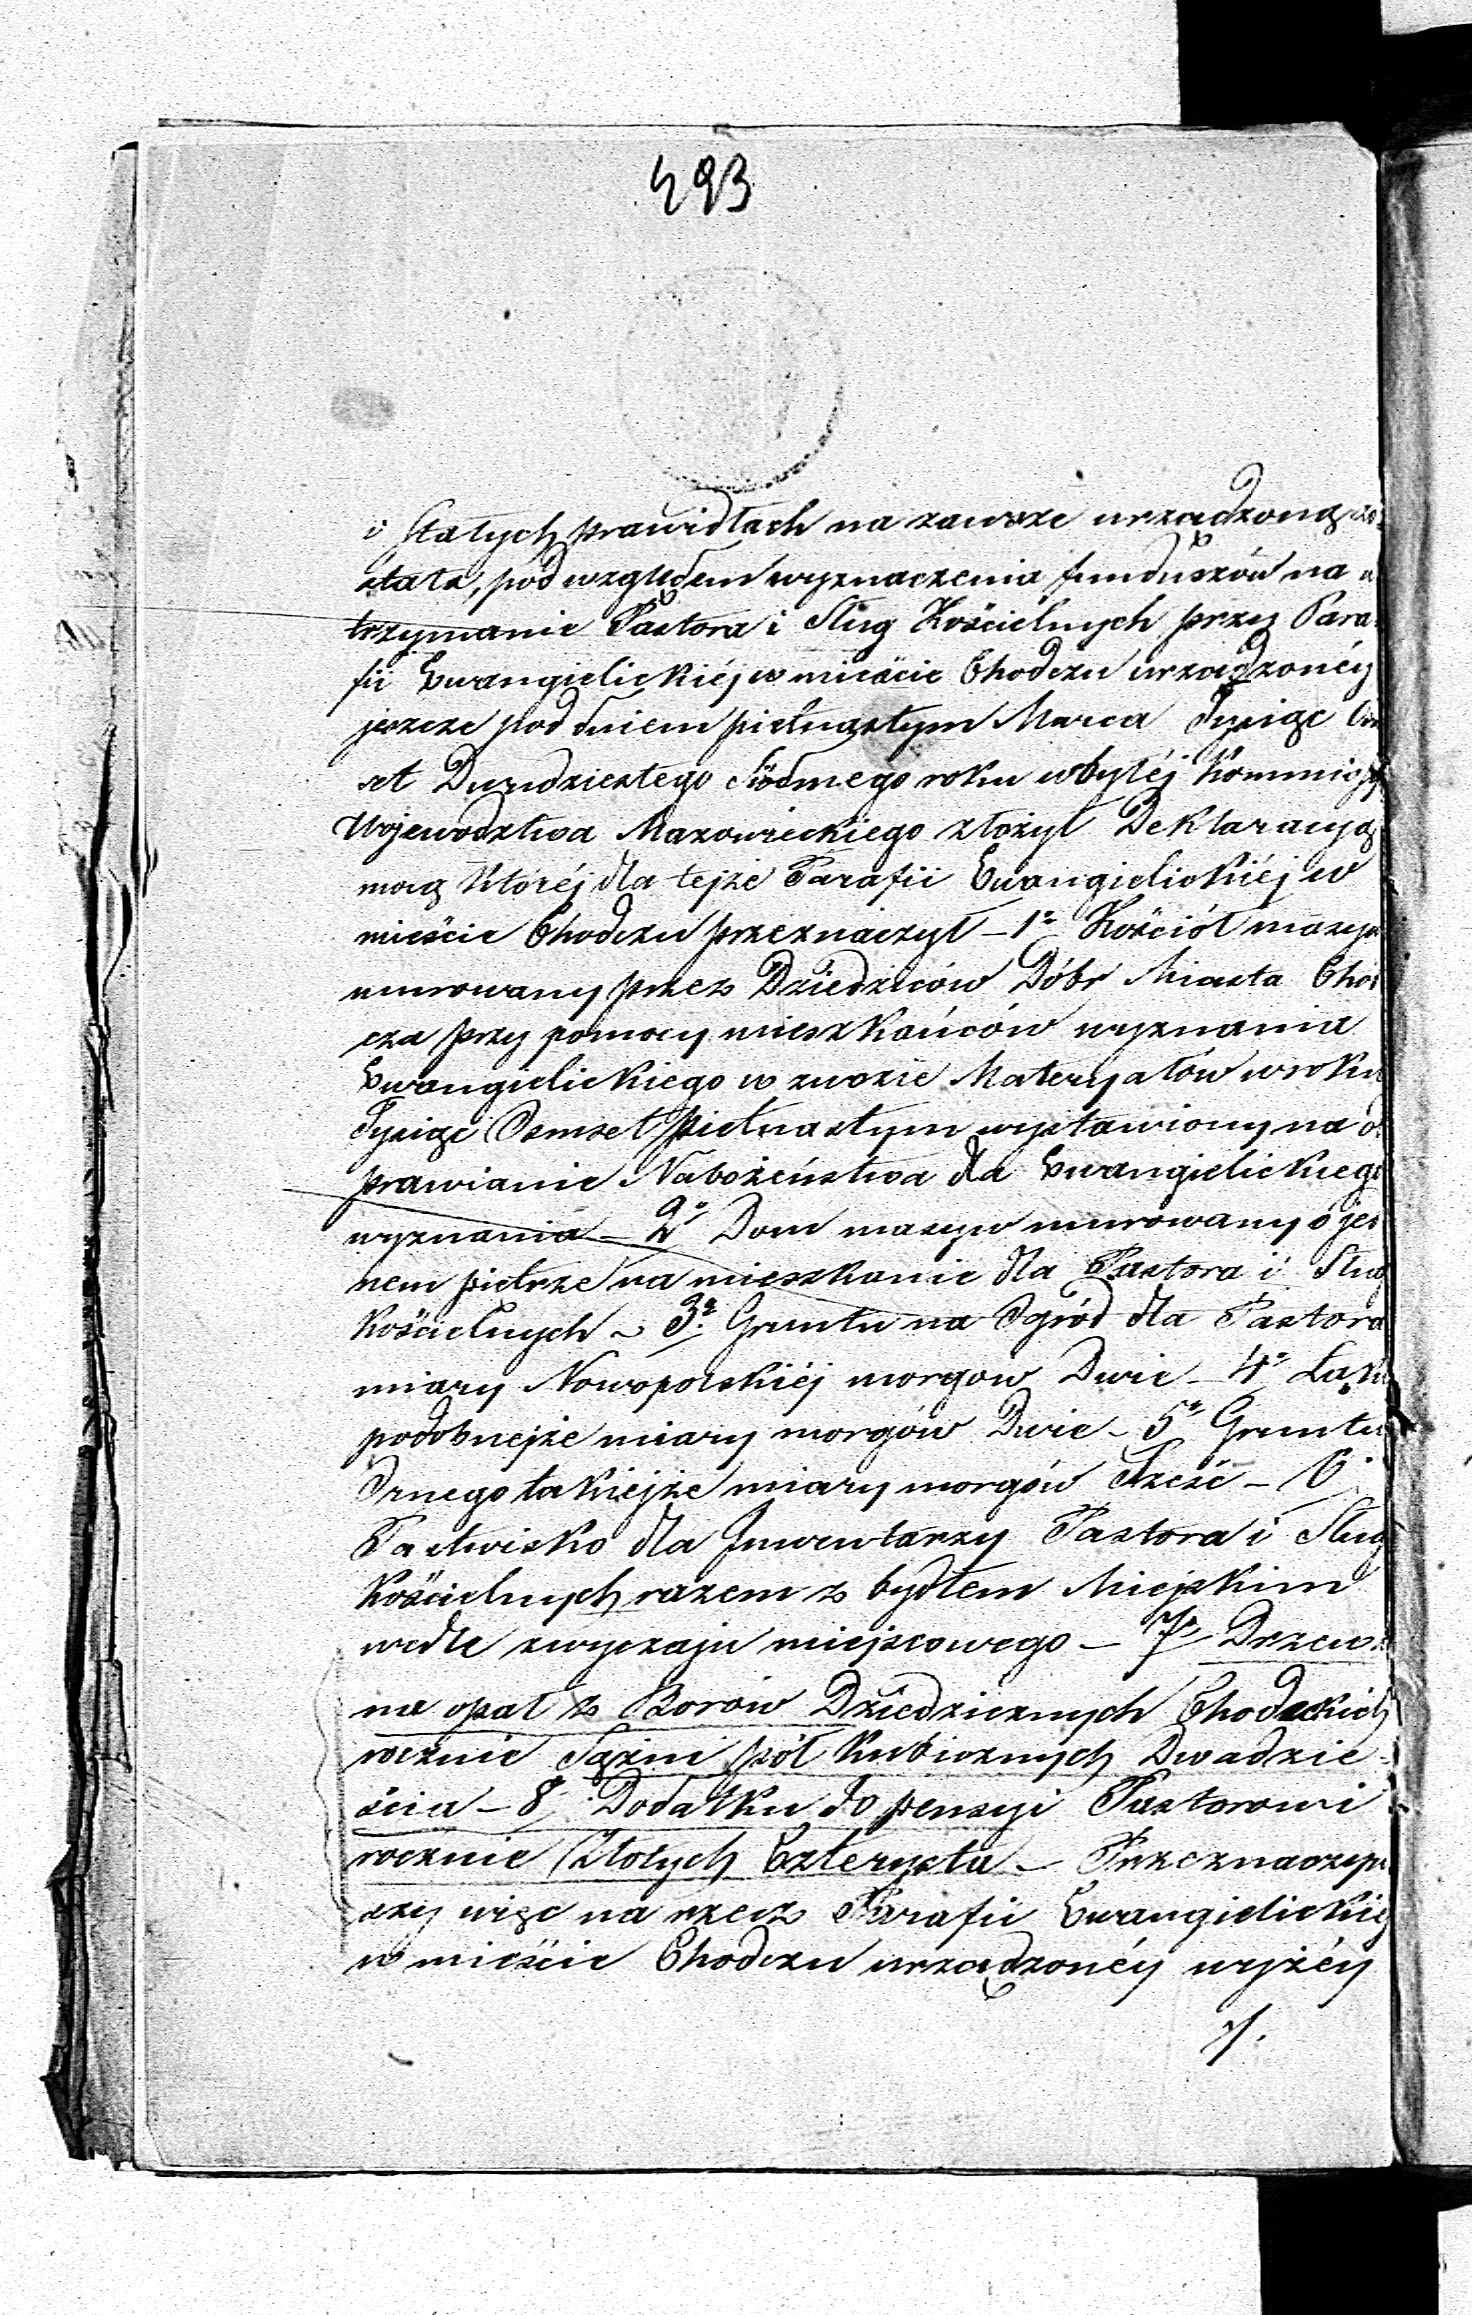 493
i stałych prawidłach na zawsze urządzoną zo-
stała, pod względem wyznaczenia funduszów na u
trzymanie Pastora i Sług Kościelnych przy Para-
fii Ewangielickiéj w mieście Chodczu urządzonéy
jeszcze pod dniem piętnastym Marca Tysiąc
set Dwudziestego Siódmego roku w byłéj Kommis
Województwa Mazowieckiego złożył Deklaracyą
mocą któréj dla tejże Parafii Ewangielickiéj w
mieście Chodczu przeznaczył – 1º Kościół masyw
murowany przez Dziedziców Dóbr Miasta Chod
cza przy pomocy mieszkańców wyznania
Ewangielickiego w zwozie Materyałów w roku
Tysiąc Osmset piętnastym wystawiony na o
prawianie Nabożeństwa dla Ewangielickiego
wyznania – 2º Dom masyw murowany o jed
nem piętrze na mieszkanie dla Pastora i Sług
Kościelnych – 3º Gruntu na Ogród dla Pastora
miary Nowopolskiéj morgów Dwie – 4º Łąki
podobnejże miary morgów Dwie – 5º Gruntu
Ornego takiejże miary morgów Sześć – 6º
Pastwisko dla Inwentarzy Pastora i Sług
Kościelnych razem z bydłem Miejskim
wedle zwyczaju miejscowego – 7º Drzewa
na opał z Borów Dziedzicznych Chodeckich
rocznie Sążni pół kubicznych Dwadzie-
ścia – 8º Dodatku do pensyi Pastorowi
rocznie Złotych Czterysta – Przeznaczyw
szy więc na rzecz Parafii Ewangielickiéj
w mieście Chodczu urządzonéy wyżéy